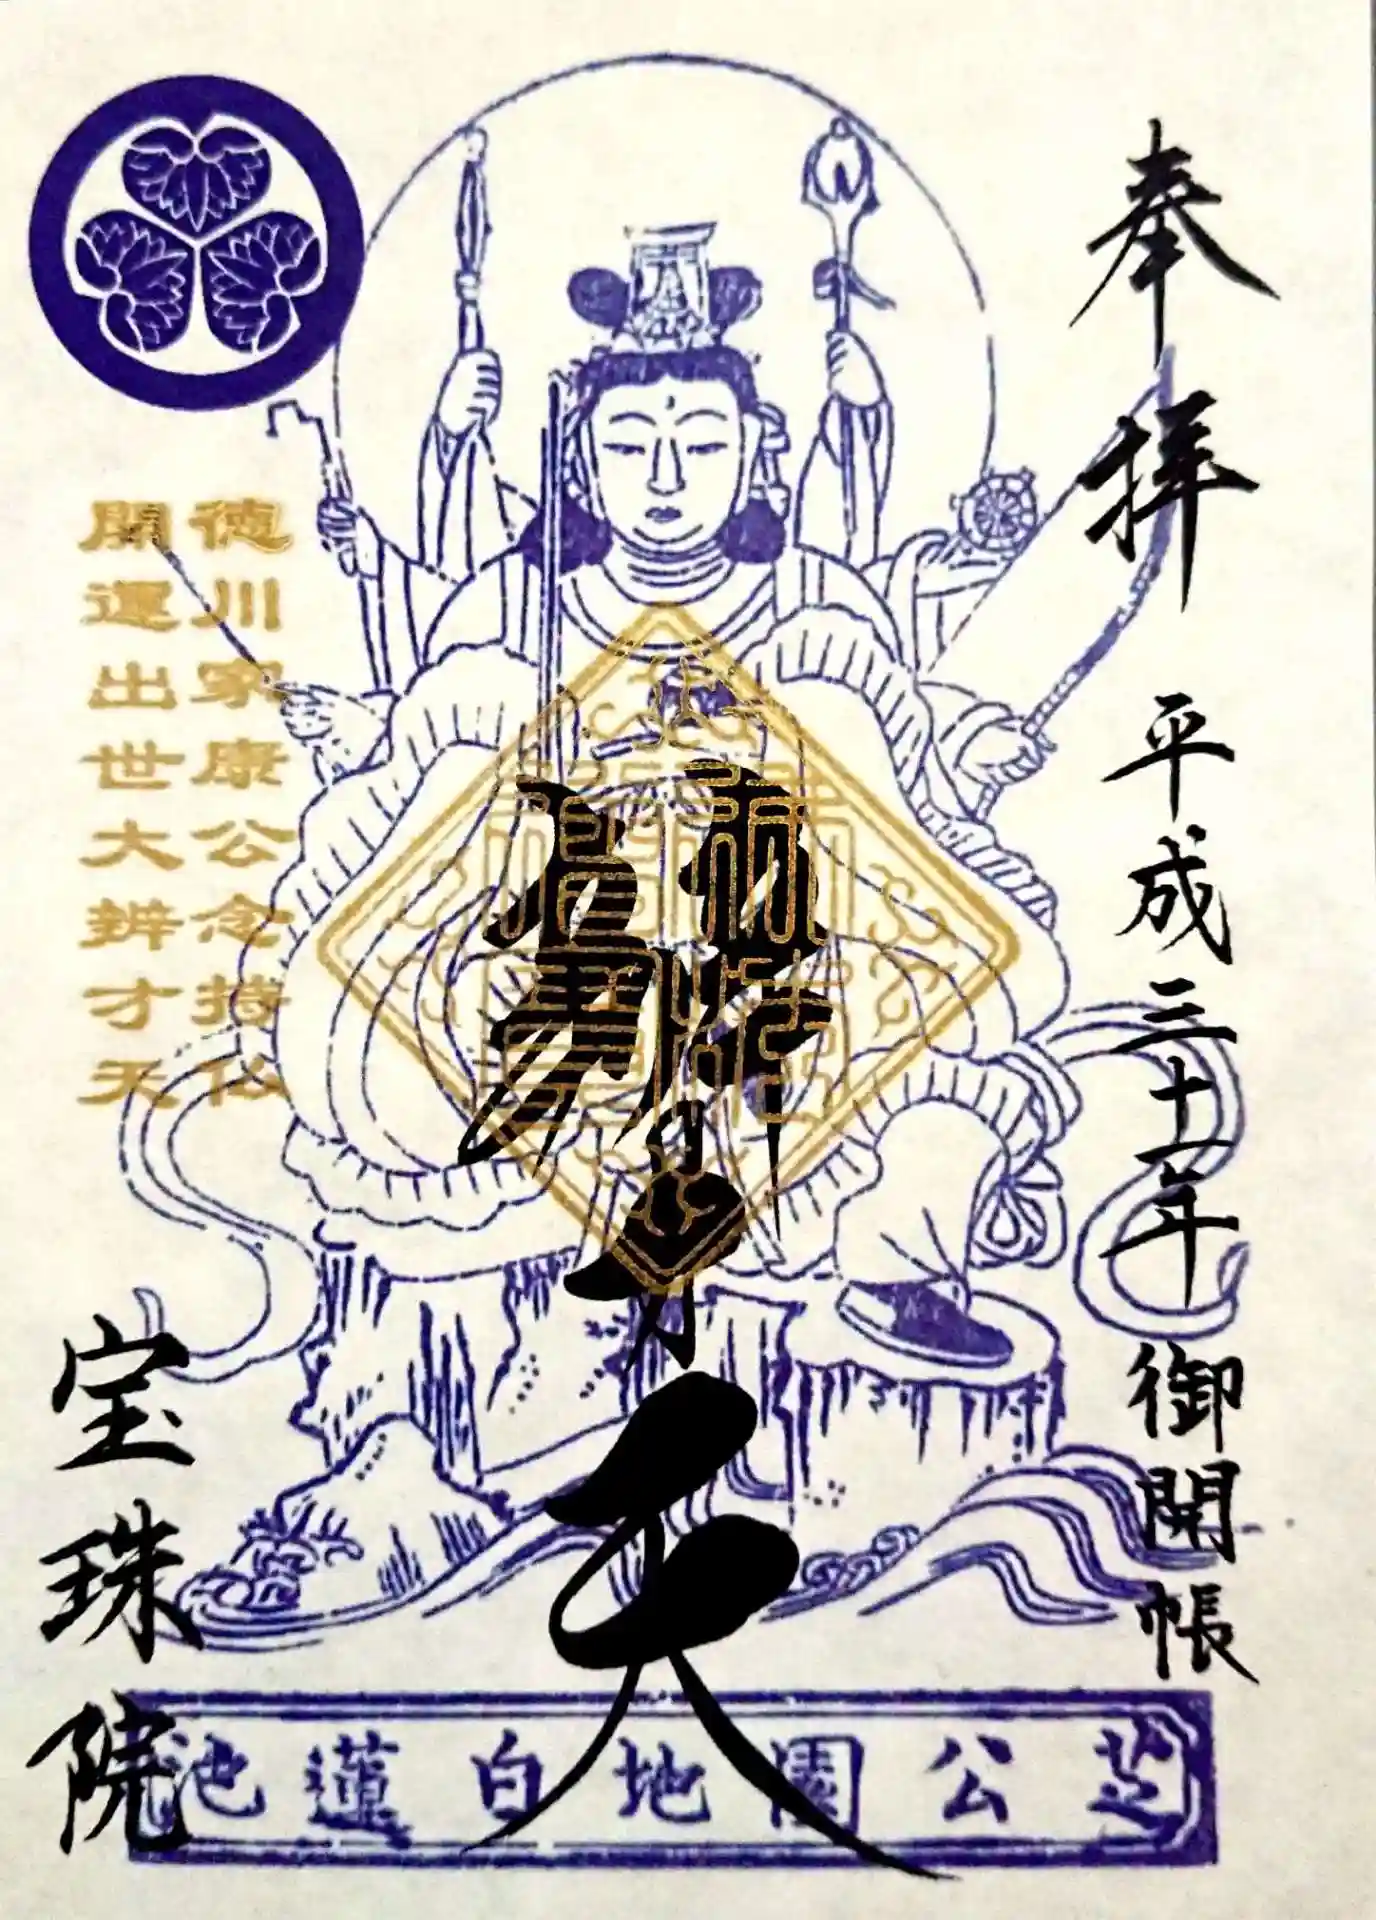 奉拝 平成三十一年 御開帳
辨才天
徳川家康公念持仏
開運出世大辨才天
宝珠院
芝公園地白蓮池